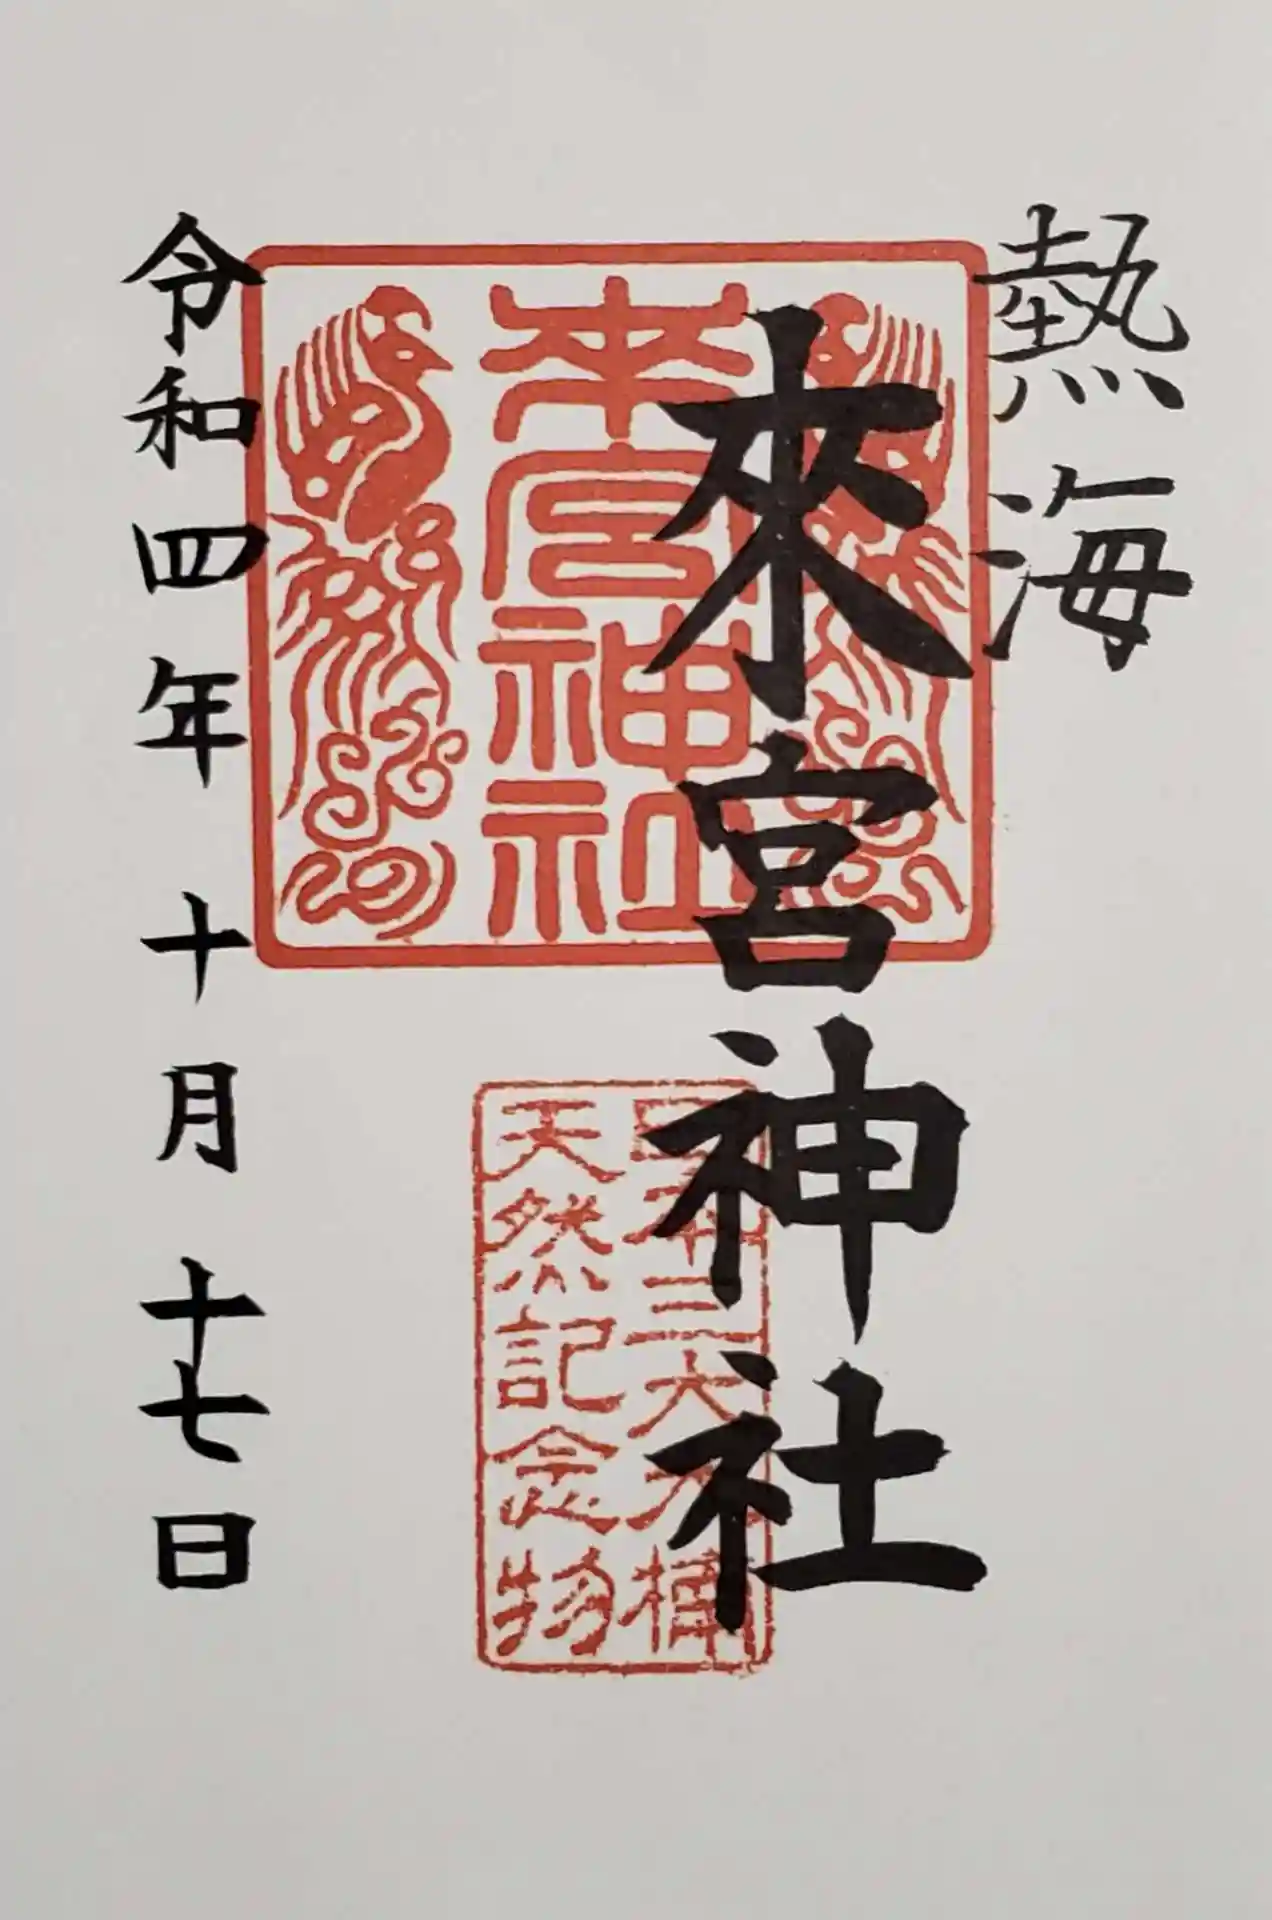 熱海
來宮神社
来宮神社
日本三大大楠
天然記念物
令和四年十月十七日